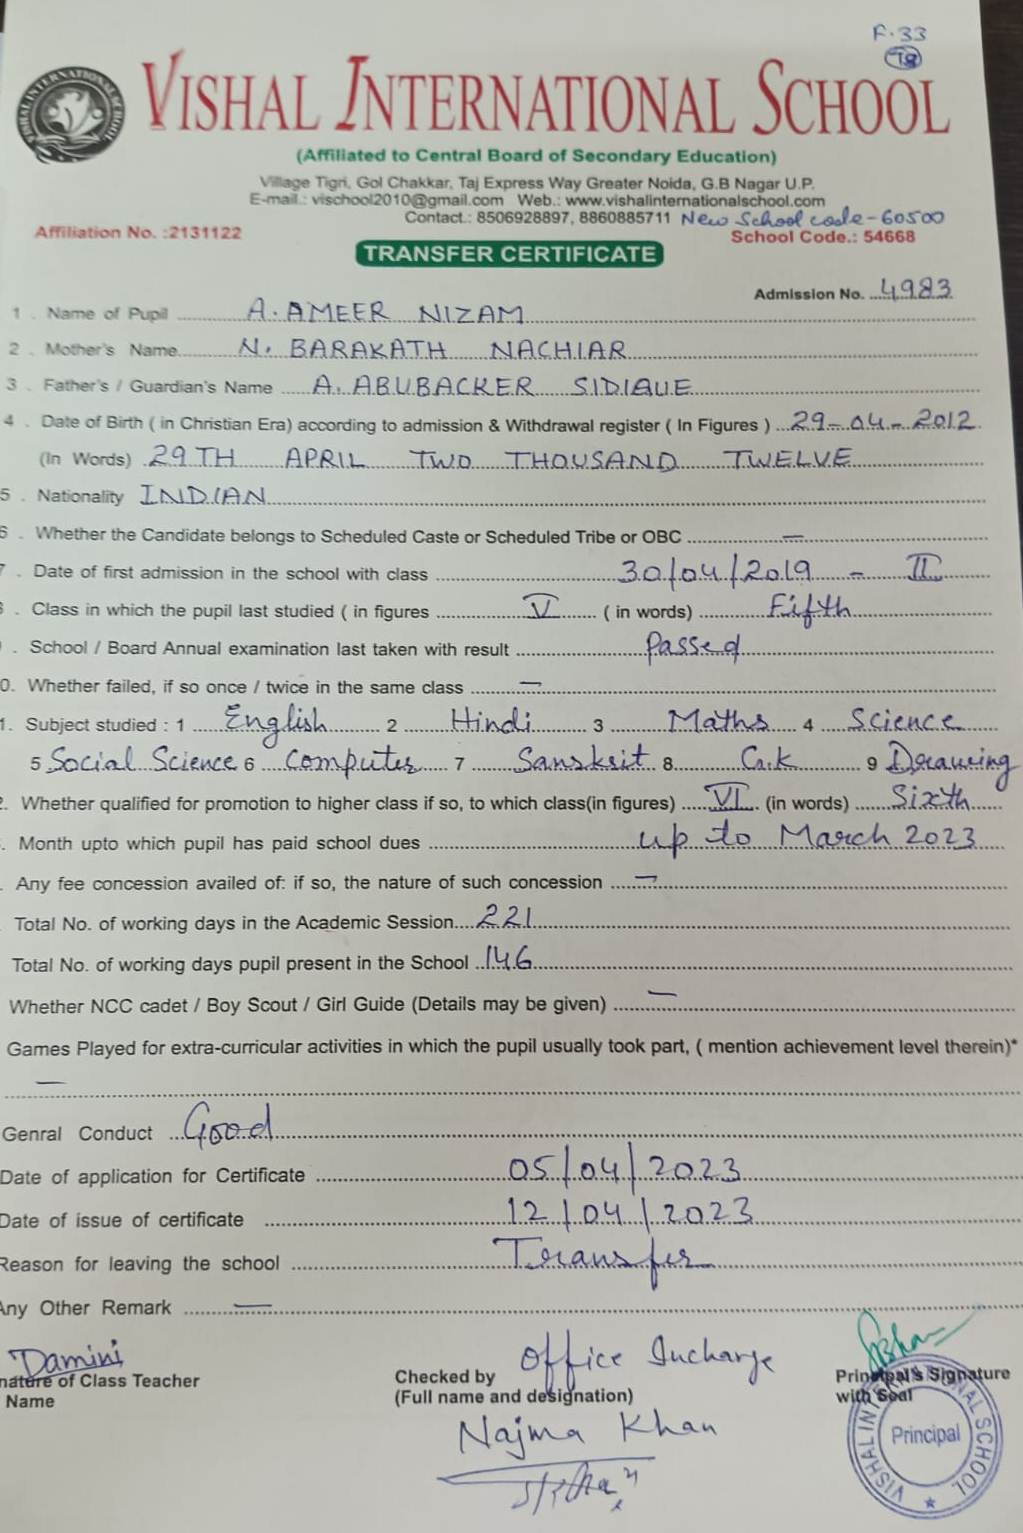 F.33
T8
VISHAL INTERNATIONAL SCHOOL
(Affiliated to Central Board of Secondary Education)
Village Tigri, Gol Chakkar, Taj Express Way Greater Noida, G.B Nagar U.P.
E-mail.: vischool2010@gmail.com Web.: www.vishalinternationalschool.com
Contact.: 8506928897, 8860885711 New School code-60500
Affiliation No. :2131122 School Code.: 54668
TRANSFER CERTIFICATE
Admission No. 4983
1 . Name of Pupil A. AMEER NIZAM
2 . Mother's Name N. BARAKATH NACHIAR
3 . Father's / Guardian's Name A. ABUBACKER SIDIQUE
4 . Date of Birth ( in Christian Era) according to admission & Withdrawal register ( In Figures ) 29-04-2012
(In Words) 29TH APRIL TWO THOUSAND TWELVE
5 . Nationality INDIAN
6 . Whether the Candidate belongs to Scheduled Caste or Scheduled Tribe or OBC —
7 . Date of first admission in the school with class 30/04/2019 - II
. Class in which the pupil last studied ( in figures V ( in words) Fifth
. School / Board Annual examination last taken with result Passed
0. Whether failed, if so once / twice in the same class —
1. Subject studied : 1 English 2 Hindi 3 Maths 4 Science
5 Social Science 6 Computer 7 Sanskrit 8 G.K 9 Drawing
2. Whether qualified for promotion to higher class if so, to which class(in figures) VI (in words) Sixth
. Month upto which pupil has paid school dues up to March 2023
. Any fee concession availed of: if so, the nature of such concession —
Total No. of working days in the Academic Session 221
Total No. of working days pupil present in the School 146
Whether NCC cadet / Boy Scout / Girl Guide (Details may be given) —
Games Played for extra-curricular activities in which the pupil usually took part, ( mention achievement level therein)*
—
Genral Conduct Good
Date of application for Certificate 05/04/2023
Date of issue of certificate 12/04/2023
Reason for leaving the school Transfer
Any Other Remark —
Damini
nature of Class Teacher
Name
Checked by Office Incharge
(Full name and designation)
Najma Khan
Principal's Signature
with Seal
VISHAL INTERNATIONAL SCHOOL
Principal